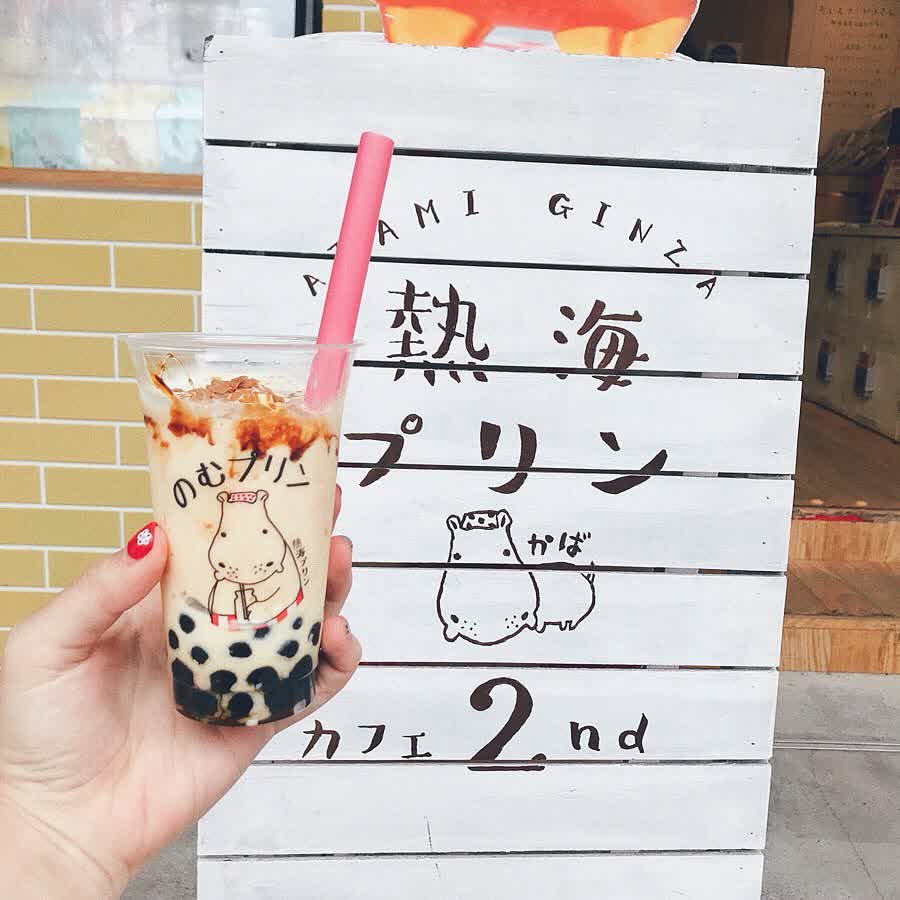 ATAMI GINZA
熱海
プリン
かば
カフェ 2nd
のむプリン
熱海プリン